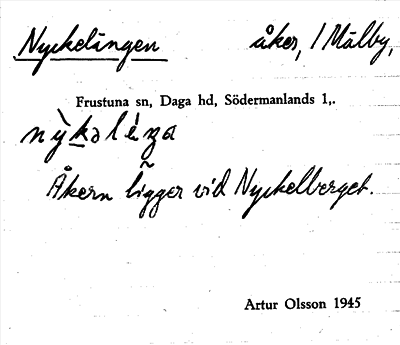 Nyckelängen åker, 1 Målby,
Frustuna sn, Daga hd, Södermanlands l,.
Åkern ligger vid Nyckelberget.
Artur Olsson 1945